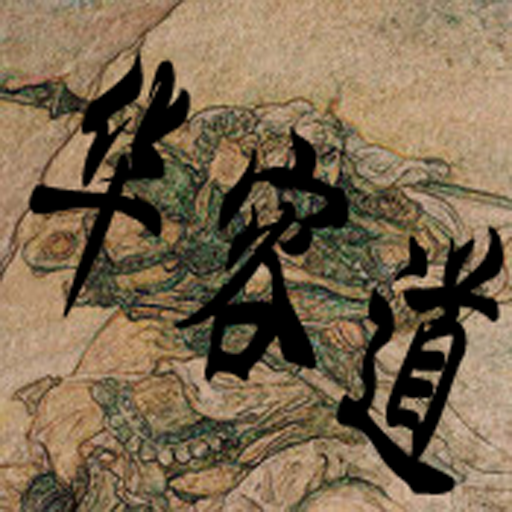 华容道